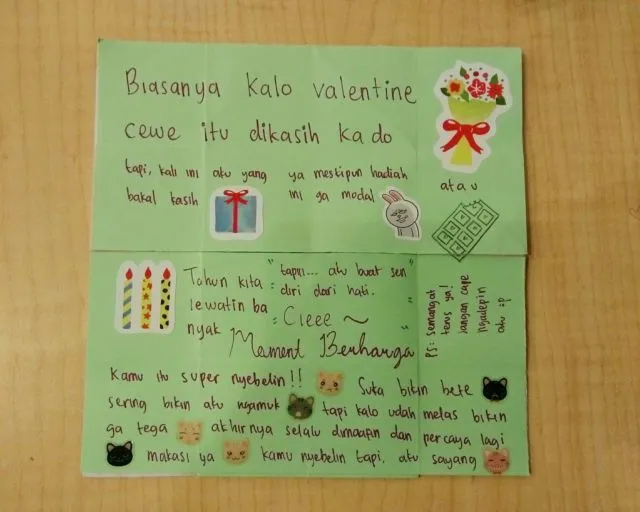 Biasanya kalo valentine
cewe itu dikasih kado
tapi, kali ini aku yang
bakal kasih
ya meskipun hadiah
ini ga modal
atau
Tahun kita
lewatin ba
nyak
" tapii... aku buat sen "
diri dari hati.
" Cieee ~ "
Moment Berharga
PS: semangat
terus ya!
jangan cape
ngadepin
aku :p
Kamu itu super nyebelin!! Suka bikin bete
sering bikin aku ngamuk tapi kalo udah melas bikin
ga tega akhirnya selalu dimaafin dan percaya lagi
makasi ya kamu nyebelin tapi, aku sayang